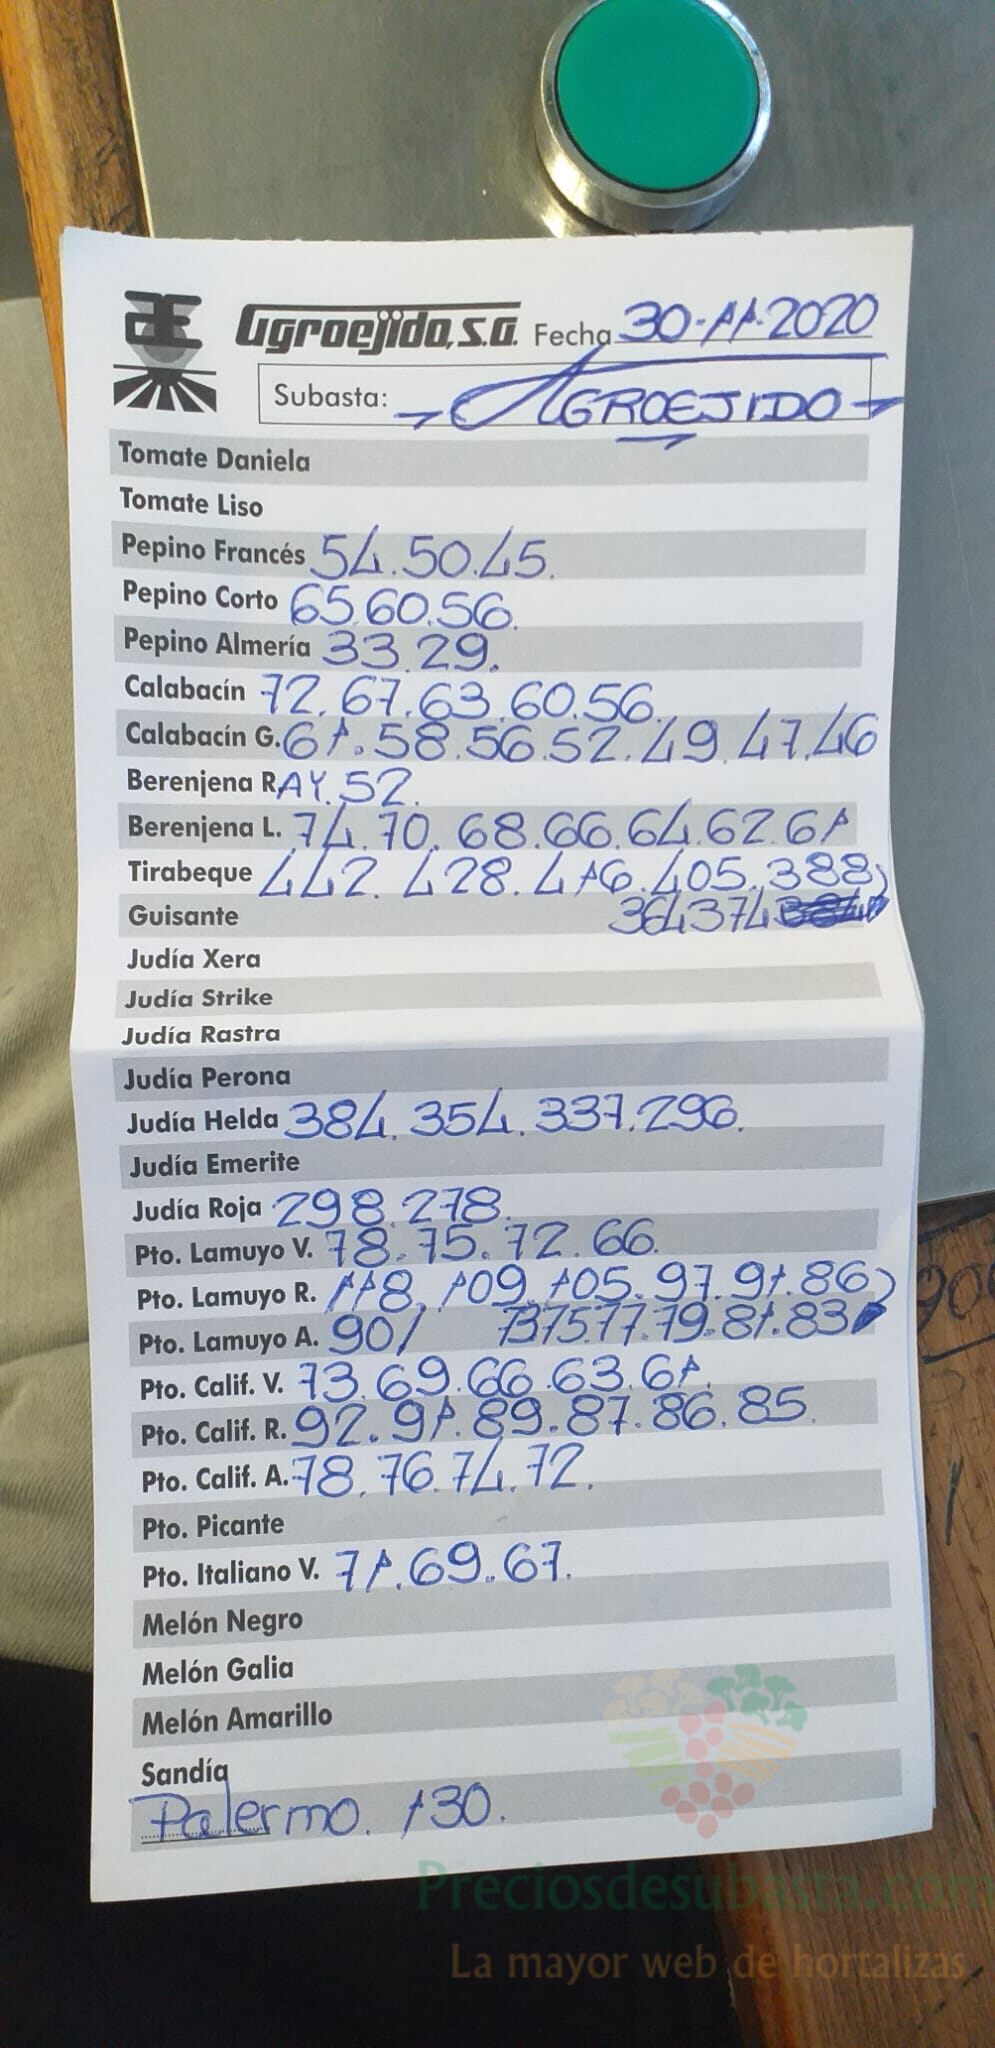 Agroejido, S.A. Fecha 30-11-2020
Subasta: AGROEJIDO
Tomate Daniela
Tomate Liso
Pepino Francés 54.50.45.
Pepino Corto 65.60.56.
Pepino Almería 33.29.
Calabacín 72.67.63.60.56.
Calabacín G. 61.58.56.52.49.47.46
Berenjena RAY.52.
Berenjena L. 74.70.68.66.64.62.61
Tirabeque 442.428.416.405.388
Guisante 364374
Judía Xera
Judía Strike
Judía Rastra
Judía Perona
Judía Helda 384.354.337.296.
Judía Emerite
Judía Roja 298.278.
Pto. Lamuyo V. 78.75.72.66.
Pto. Lamuyo R. 118.109.105.97.91.86
Pto. Lamuyo A. 90/ 737577.79.81.83
Pto. Calif. V. 73.69.66.63.61.
Pto. Calif. R. 92.91.89.87.86.85.
Pto. Calif. A. 78.76.74.72.
Pto. Picante
Pto. Italiano V. 71.69.67.
Melón Negro
Melón Galia
Melón Amarillo
Sandía
Palermo. 130.
Preciosdesubasta.com
La mayor web de hortalizas